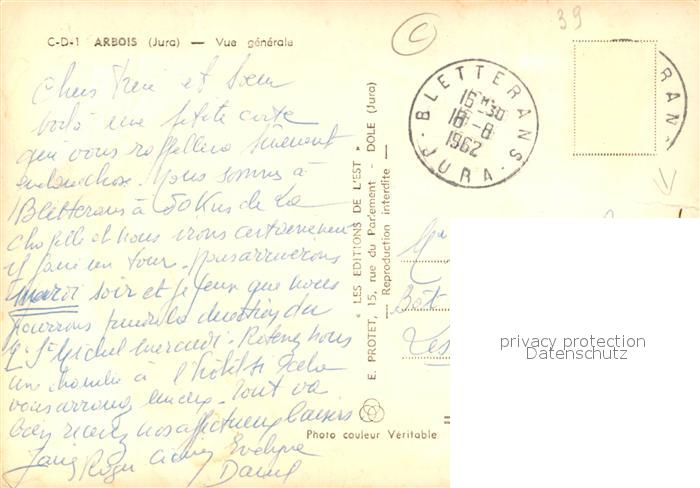 C-D-1 ARBOIS (Jura) — Vue générale
39
Chers Frère et Soeur
voilà une petite carte
qui vous rappellera sûrement
quelque chose. Nous sommes à
Bletterans à 50 Kms de La
Chapelle et nous irons certainement
y faire un tour. Nous arriverons
mardi soir et je pense que nous
pourrons prendre la direction du
St Michel mercredi. Retenez nous
une chambre à l'hôtel si cela
vous arrange mieux. Tout va
bien recevez nos affectueux baisers
Roger Evelyne
Daniel
" LES EDITIONS DE L'EST "
E. PROTET, 15, rue du Parlement - DOLE (Jura)
— Reproduction interdite —
Photo couleur Véritable
BLETTERANS
16 H 30
18-8
1962
JURA
RAN
Bât
Les
privacy protection
Datenschutz